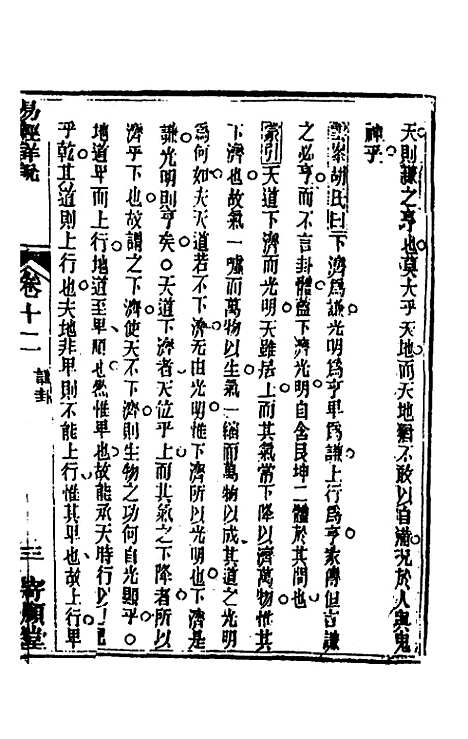 天則謙之亨也莫大乎天地而天地猶不敢以自滿况於人與鬼
神乎
雲峯胡氏曰下濟爲謙光明爲亨卑爲謙上行爲亨彖傳但言謙
之必亨而不言卦體蓋下濟光明自含艮坤二體於其間也
蒙引天道下濟而光明天雖居上而其氣常下降以濟萬物惟其
下濟也故氣一噓而萬物以生氣一縮而萬物以成其道之光明
爲何如夫天道若不下濟无由光明惟下濟所以光明也下濟是
謙光明則亨矣○天道下濟者天位乎上而其氣之下降者所以
濟乎下也故謂之下濟使天不下濟則生物之功何自光顯乎
地道卑而上行地道至卑順也然惟卑也故能承天時行以上
乎乾其道則上行也夫地非卑則不能上行惟其卑也故上行卑
易經詳說
卷十二
謙卦
三
寄願堂